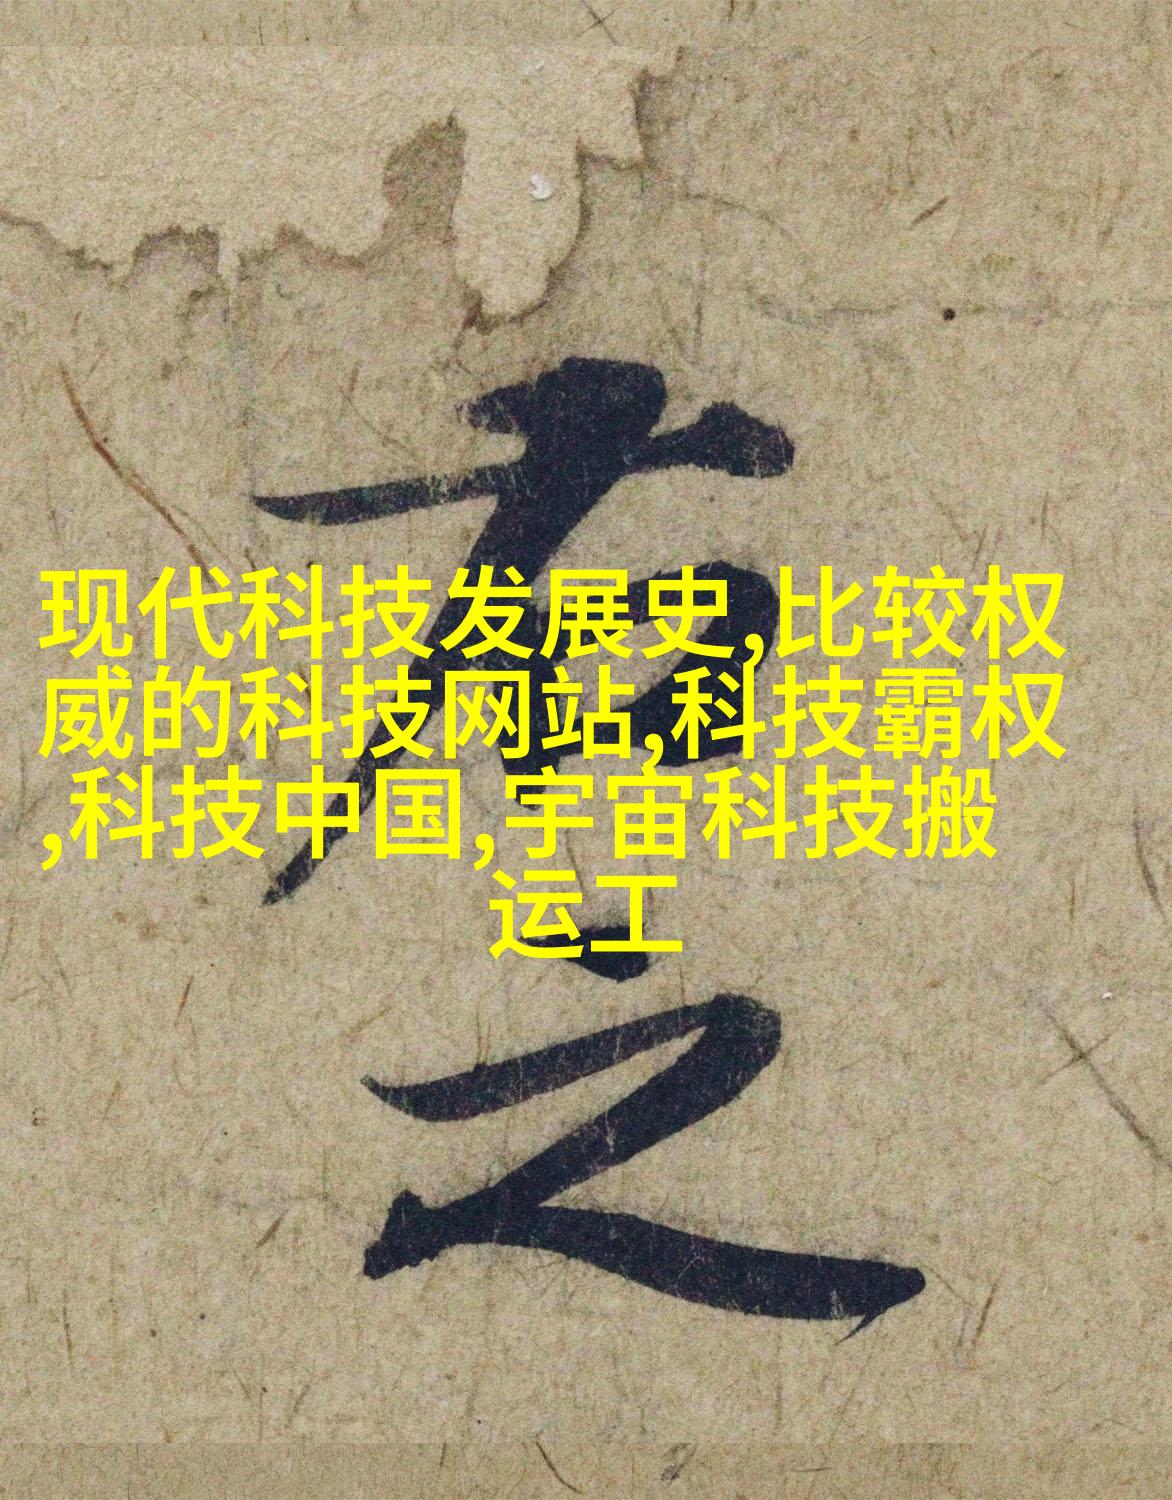 现代科技发展史,比较权
威的科技网站,科技霸权
,科技中国,宇宙科技搬
运工